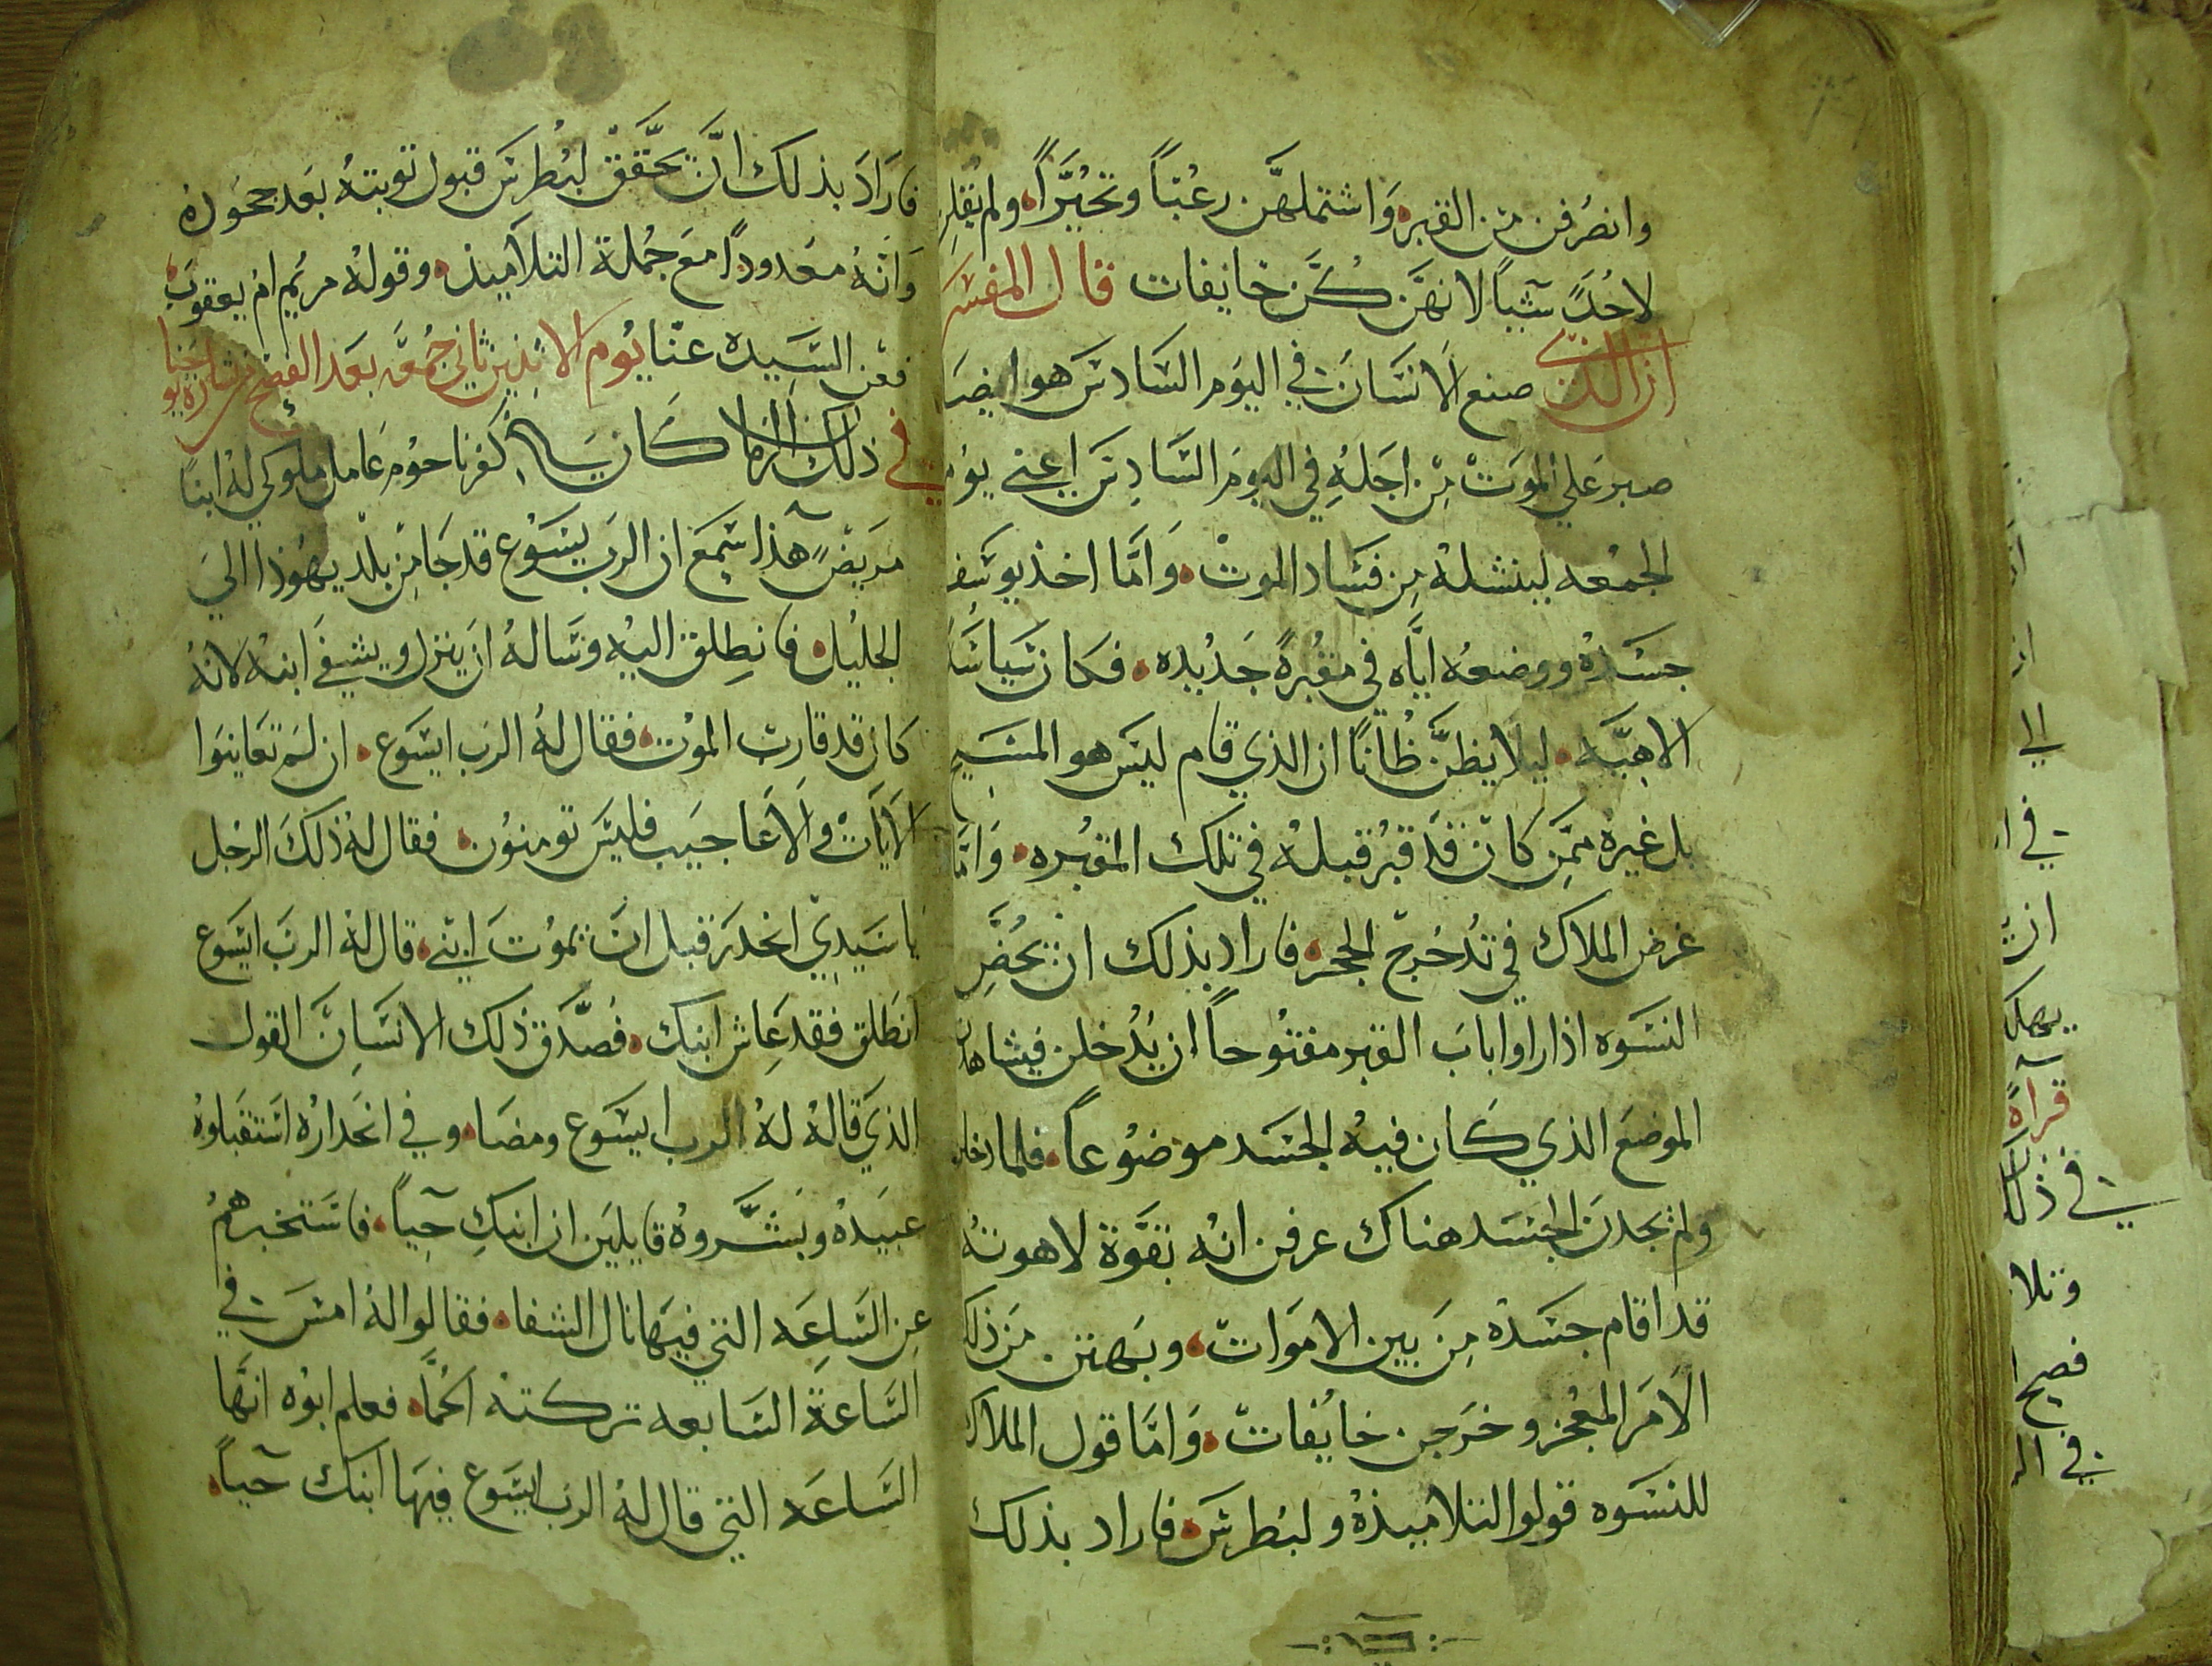 وانصرفن من القبر واشتملهن رعبتاً وتحيراً ولم يقلن
لاحد شيياً لانهن كن خايفات قال المفسر
ان الذي صنع الانسان في اليوم السادس هو ايضا
صبر علي الموت من اجله في اليوم السادس اعني يوم
الجمعه لينشله من فساد الموت وَامَّا اخذ يوسف
جسده ووضعه اياه في مقبرةً جديده فكان سياسَة
الاهيَّه ليلا يظنَّ ظانًا ان الذي قام ليس هو المسيح
بل غيره ممن كان قد قبر قبله في تلك المقبره وَامَّا
غرض الملاك في تدحرج الحجر فاراد بذلك ان تحضّ
النسوه اذا راوا باب القبر مفتوحاً ان يدخلن فيشاهدن
الموضع الذي كان فيه الجسد موضوعاً فلما دخلن
ولم يجدن الجسد هناك عرفن انه بقوَّة لاهوته
قد اقام جسده من بين الاموات وبهتن من ذلك
الامر المعجز وخرجن خايفات وَامَّا قول الملاك
للنسوه قولوا لتلاميذهُ ولبطرس فاراد بذلك
فارادَ بذلك انَّ تحقّق لبطرس قبول توبته بعد جحوده
وانهُ معدودًا مع جُملة التلاميذ وقوله مريم ام يعقوب
فعن السيده عنا يوم الاثنين ثاني جمعه بعد الفصح من بشارة يوحنا
في ذلك الزمان كان في كفرناحوم عامل ملوكي له ابنًا
مريضٍ هذا سمع ان الرب يسوع قد جا من بلد يهوذا الي
الجليل فانطلق اليه وسَاله ان ينزل ويشفي ابنه لانه
كان قد قارب الموت فقال له الرب ايسوع ان لم تعاينوا
الايات والاعاجيب فليس تومنون فقال له ذلك الرجل
يا سيدي انحدر قبل ان يموت ابني قال له الرب ايسوع
انطلق فقد عاش ابنك فصدَّق ذلك الانسان القول
الذي قاله له الرب ايسوع ومضا وفي انحداره استقبلوهُ
عبيده وبشَّروه قايلين ان ابنك حياً فاستخبرهم
عن السَّاعه التي فيها نال الشفا فقالوا له امس في
السَّاعة السَّابعه تركته الحمَّا فعلم ابوه انها
السَّاعه التي قال له الرب ايسوع فيها ابنك حياً
الي
في
قراة
في ذلك
وتلا
فصح
في